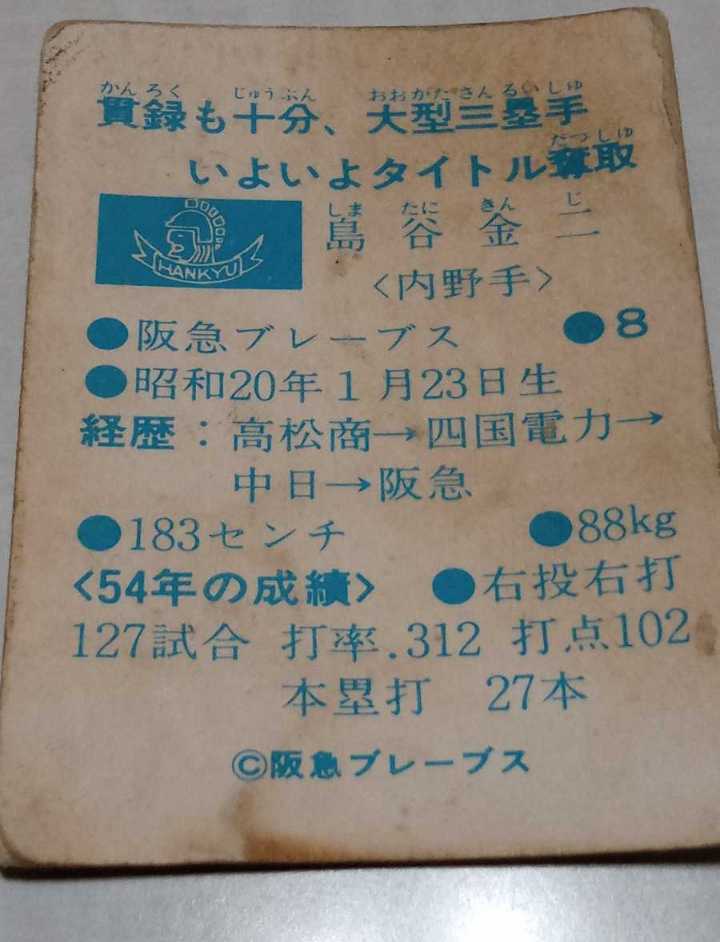 かんろく じゅうぶん おおがたさんるいしゅ
貫録も十分、大型三塁手
だっしゅ
いよいよタイトル奪取
しま たに きん じ
島谷金二
HANKYU
<内野手>
●阪急ブレーブス ●8
●昭和20年1月23日生
経歴:高松商→四国電力→
中日→阪急
●183センチ ●88kg
<54年の成績> ●右投右打
127試合 打率.312 打点102
本塁打 27本
©阪急ブレーブス